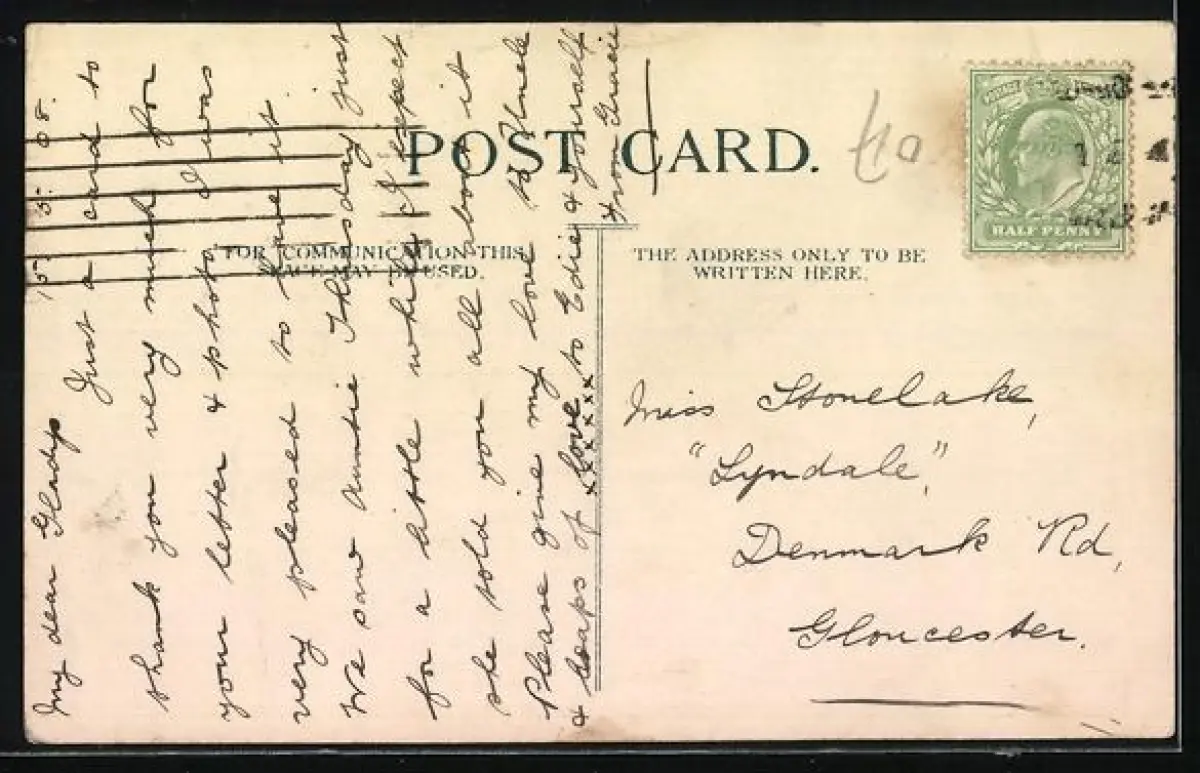 POST CARD.
FOR COMMUNICATION THIS
SPACE MAY BE USED.
THE ADDRESS ONLY TO BE
WRITTEN HERE.
HALF PENNY
15. 5. 08.
My dear Gladys
Just a card to
thank you very much for
your letter & photo I was
very pleased to have it.
We saw Auntie Thursday just
for a little while I expect
she told you all about it
Please give my love to Uncle
& heaps of love to Edie & yourself
from Gracie
x x x x x x
Miss Stonelake,
"Lyndale",
Denmark Rd,
Gloucester.